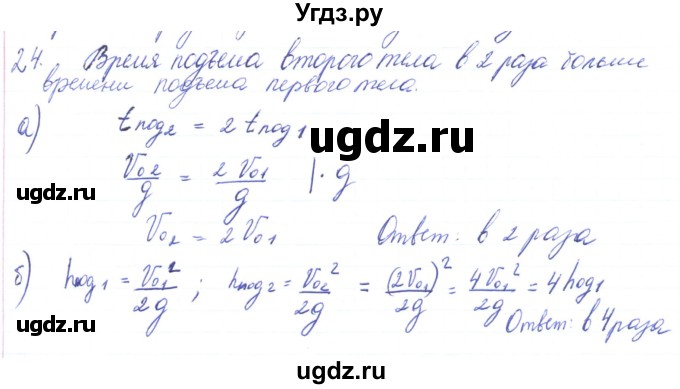 Угдз.ру
24. Время подъёма второго тела в 2 раза больше
времени подъема первого тела.
а) tпод2 = 2 tпод1
ugdz.ru
V02/g = 2V01/g |· g
ugdz.ru
V02 = 2V01 Ответ: в 2 раза
ugdz.ru
б) hпод1 = V01²/2g ; hпод2 = V02²/2g = (2V01)²/2g = 4V01²/2g = 4hпод1
ugdz.ru
Ответ: в 4 раза
ugdz.ru